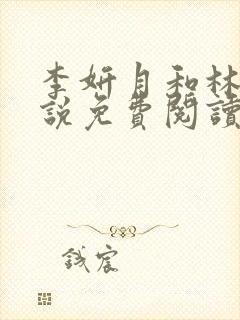 李妍月和林
說免費閱讀
誠宸